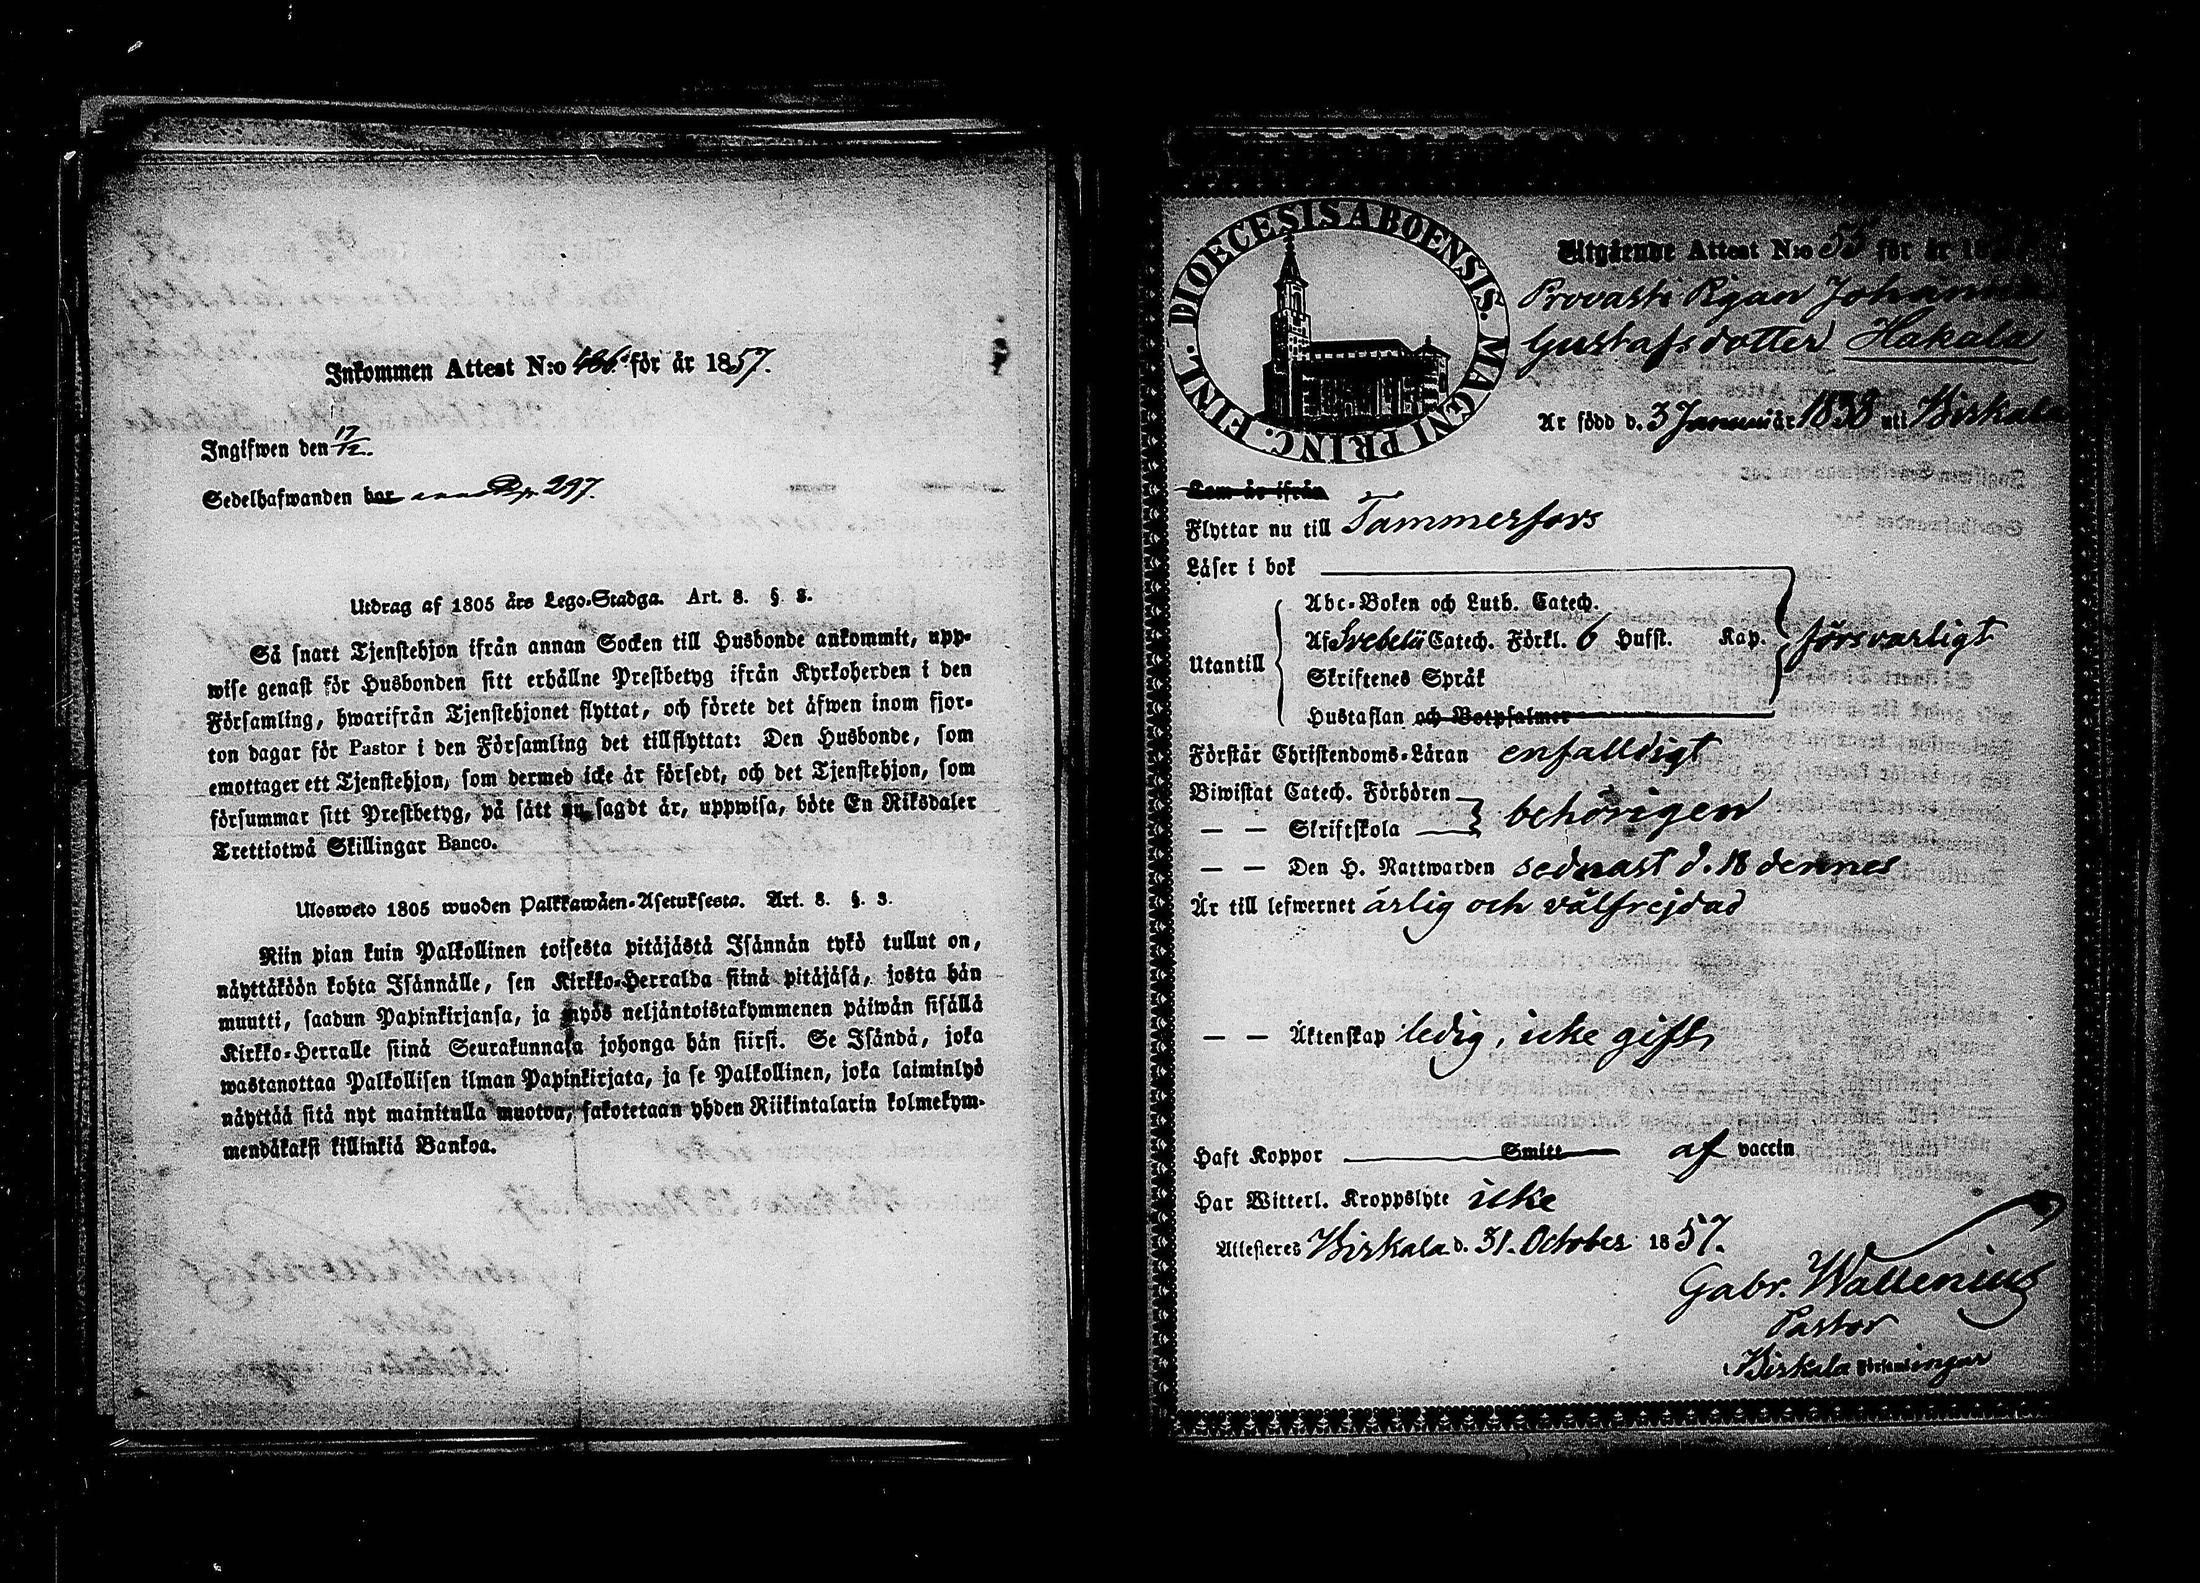 Inkommen Attest N:o 186 för år 1857.
Ingifwen den 17/12.
Sedelhafwanden har p. 297.
Utdrag af 1805 års Lego-Stadga. Art. 8. §. 3.
Så snart Tjenstehjon ifrån annan Socken till Husbonde ankommit, upp-
wise genast för Husbonden sitt erhållne Prestbetyg ifrån Kyrkoherden i den
Församling, hwarifrån Tjenstehjonet flyttat, och förete det äfwen inom fjor-
ton dagar för Pastor i den Församling det tillflyttat: Den Husbonde, som
emottager ett Tjenstehjon, som dermed icke är försedt, och det Tjenstehjon, som
försummar sitt Prestbetyg, på sätt nu sagdt är, uppwisa, böte En Riksdaler
Trettiotwå Skillingar Banco.
Ulosweto 1805 wuoden Palkkawäen-Asetuksesta. Art. 8. §. 3.
Niin pian kuin Palkollinen toisesta pitäjästä Isännän tykö tullut on,
näyttäköön kohta Isännälle, sen Kirkko-Herralda siinä pitäjäsä, josta hän
muutti, saadun Papinkirjansa, ja myös neljäntoistakymmenen päiwän sisällä
Kirkko-Herralle siinä Seurakunnasa johonga hän siirst. Se Isändä, joka
wastanottaa Palkollisen ilman Papinkirjata, ja se Palkollinen, joka laiminlyö
näyttää sitä nyt mainitulla muotoa, sakotetaan yhden Riikintalarin kolmekym-
mendäkaksi killinkiä Bankoa.
DIOECESIS ABOENSIS. MAGNI PRINC. FINL.
Utgående Attest N:o 55 för år 18
Provasti Pigan Johanna
Gustafsdotter Hakala
Är född d. 3 Januari år 1838 uti Birkala
Kom är ifrån
Flyttar nu till Tammerfors
Läser i bok
Abc-Boken och Luth. Catech.
Utantill Af Svebelii Catech. Förkl. 6 Hufst. Kap. försvarligt
Skriftenes Språk
Hustaflan och Botpsalmer
Förstår Christendoms-Läran enfalldigt
Biwistat Catech. Förhören
— — Skriftskola behörigen
— — Den H. Nattwarden sednast d. 18 dennes
Är till lefwernet ärlig och välfrejdad
— — Äktenskap ledig, icke gift,
Haft Koppor Smitt af vaccin
Har Witterl. Kroppslyte icke
Attesteres Birkala d. 31. October 1857.
Gabr. Wallenius
Pastor
Birkala Församlingar